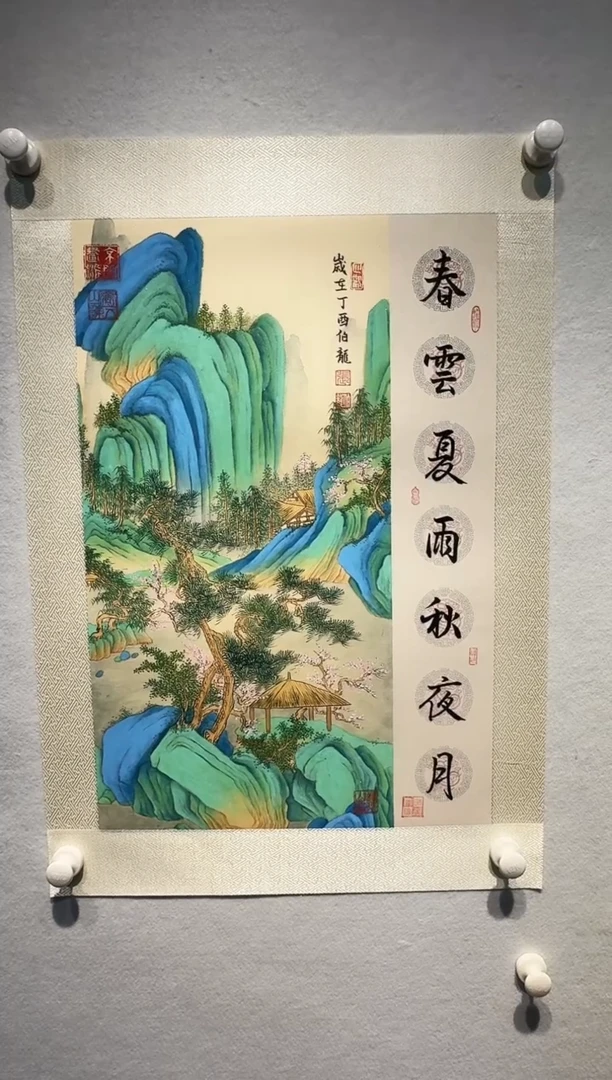 春雲夏雨秋夜月
歲在丁酉伯龍